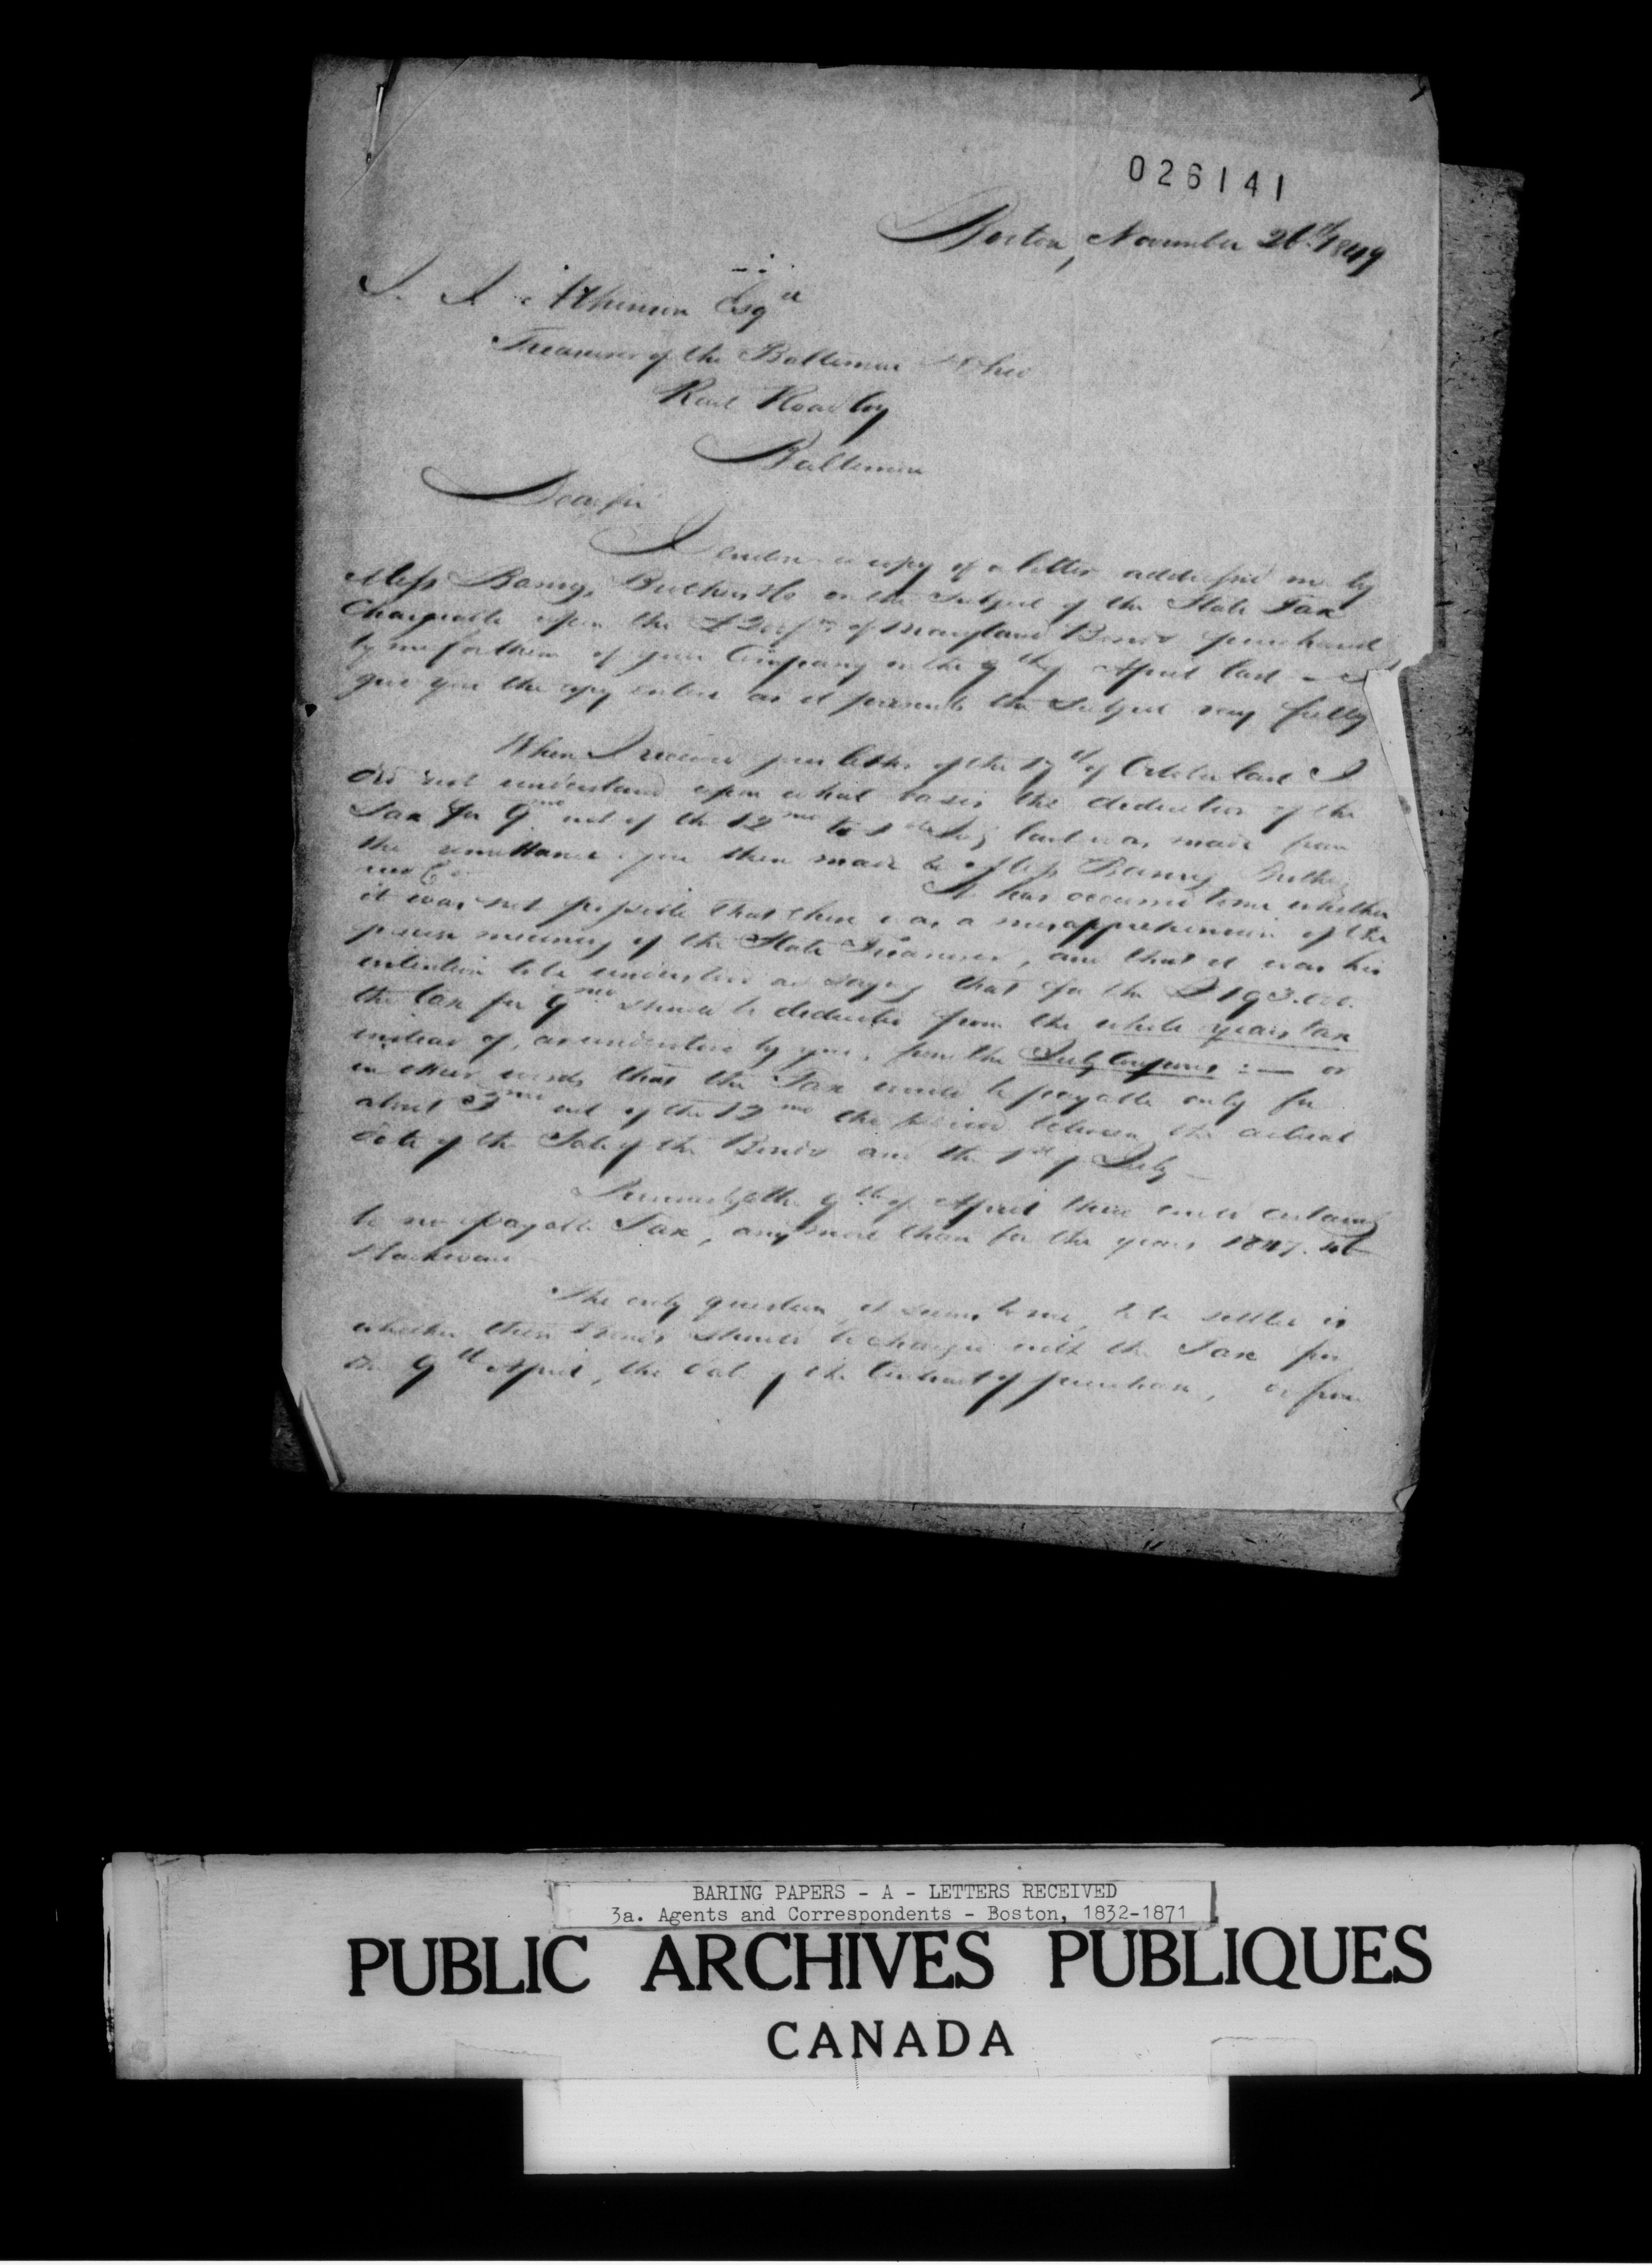 026141
Boston, November 26th 1849
J. I. Atkinson Esqr
Treasurer of the Baltimore & Ohio
Rail Road Co
Baltimore
Dear Sir
I enclose a copy of a letter addressed me by
Mess Baring, Brothers & Co on the Subject of the State Tax
Chargeable upon the of Maryland Bonds purchased
by me for them of your Company on the 9th of April last - I
give you the copy entire as it presents the Subject very fully
When I received your letter of the 17th of October last I
did not understand upon what basis the deduction of the
Tax for 9mo out of the 12mo to 1st July last was made from
the remittance you then made to Mess Baring Brothers
and Co. It has occurred to me whether
it was not possible that there was a misapprehension of the
precise meaning of the State Treasurer, and that it was his
intention to be understood as saying that for the
the tax for 9mo should be deducted from the whole years tax
instead of, as understood by you, from the July Coupons :— or
in other words that the Tax would be payable only for
about 3mo out of the 12mo the period between the actual
date of the Sale of the Bonds and the 1st of July -
Previously to the 9th of April there could certainly
be no payable Tax, any more than for the years 1847. 46
&
The only question, it seems to me, to be settled is
whether these Bonds should be charged with the Tax from
the 9th April, the date of the Contract of purchase, or from
BARING PAPERS - A - LETTERS RECEIVED
3a. Agents and Correspondents - Boston, 1832-1871
PUBLIC ARCHIVES PUBLIQUES
CANADA